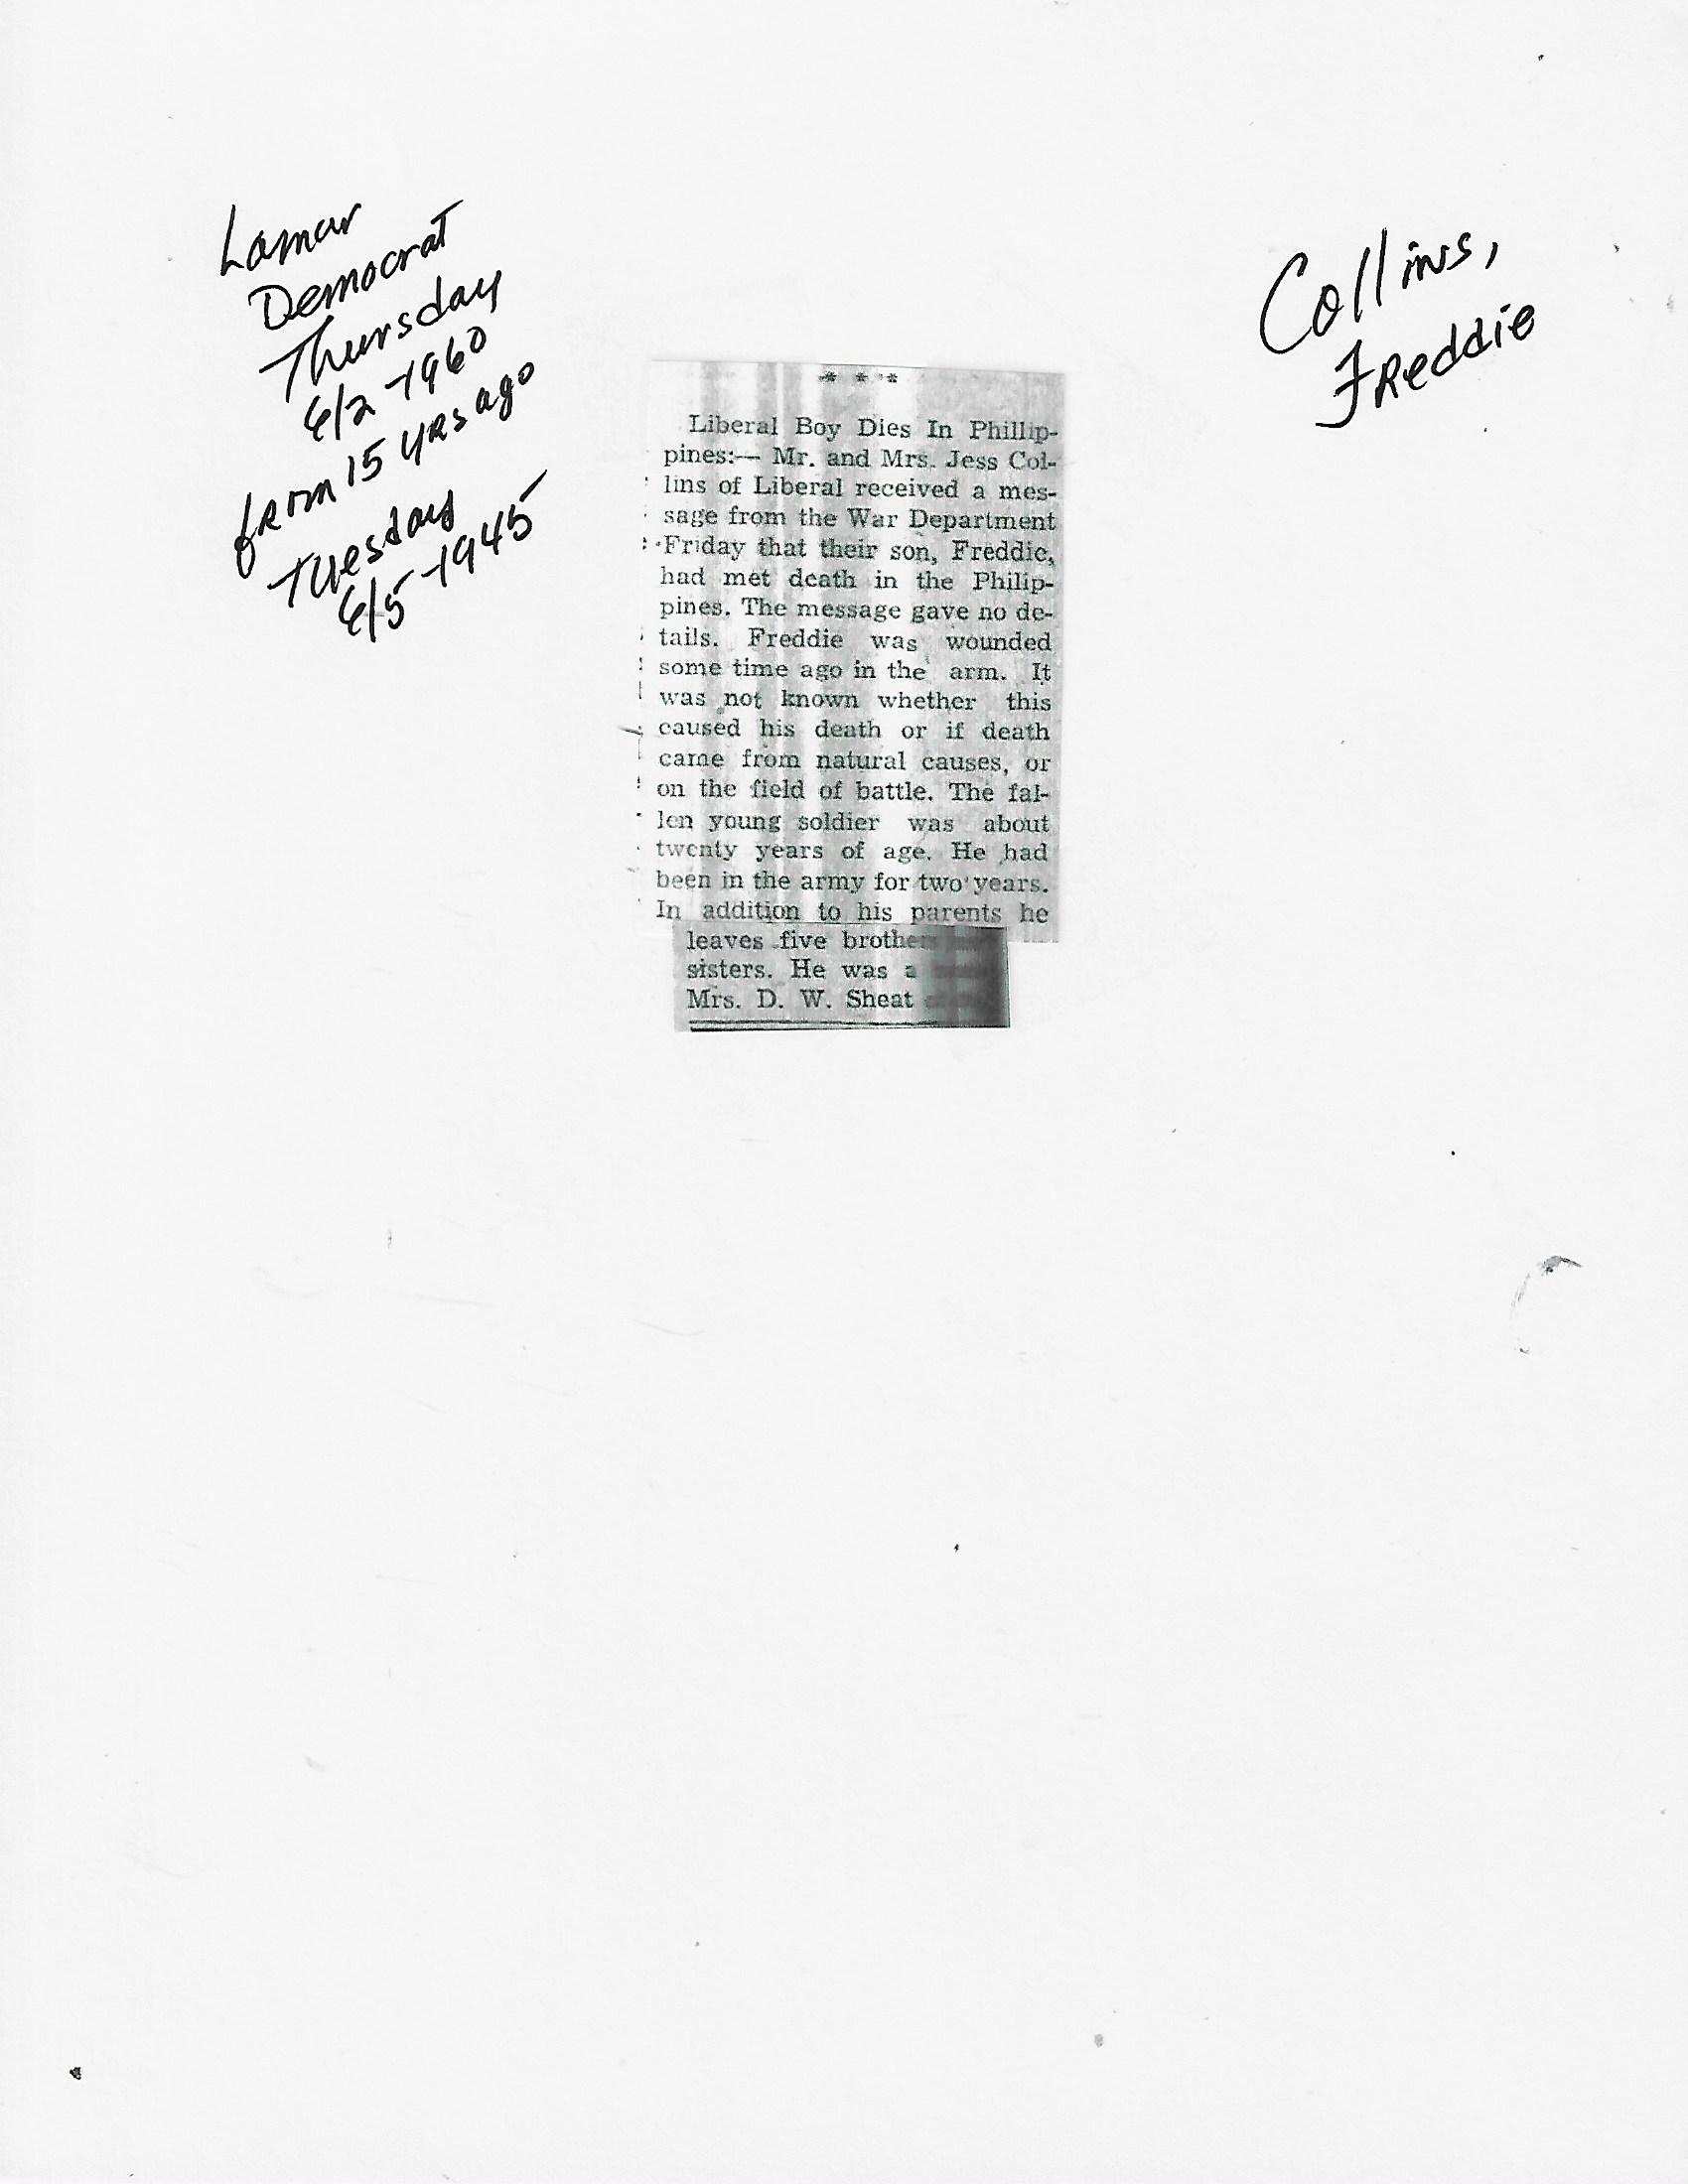 Lamar
Democrat
Thursday
6/2-1960
from 15 yrs ago
Tuesday
6/5-1945
Collins,
Freddie
* * *
Liberal Boy Dies In Phillip-
pines:— Mr. and Mrs. Jess Col-
lins of Liberal received a mes-
sage from the War Department
Friday that their son, Freddie,
had met death in the Philip-
pines. The message gave no de-
tails. Freddie was wounded
some time ago in the arm. It
was not known whether this
caused his death or if death
came from natural causes, or
on the field of battle. The fal-
len young soldier was about
twenty years of age. He had
been in the army for two years.
In addition to his parents he
leaves five brother
sisters. He was a
Mrs. D. W. Sheat